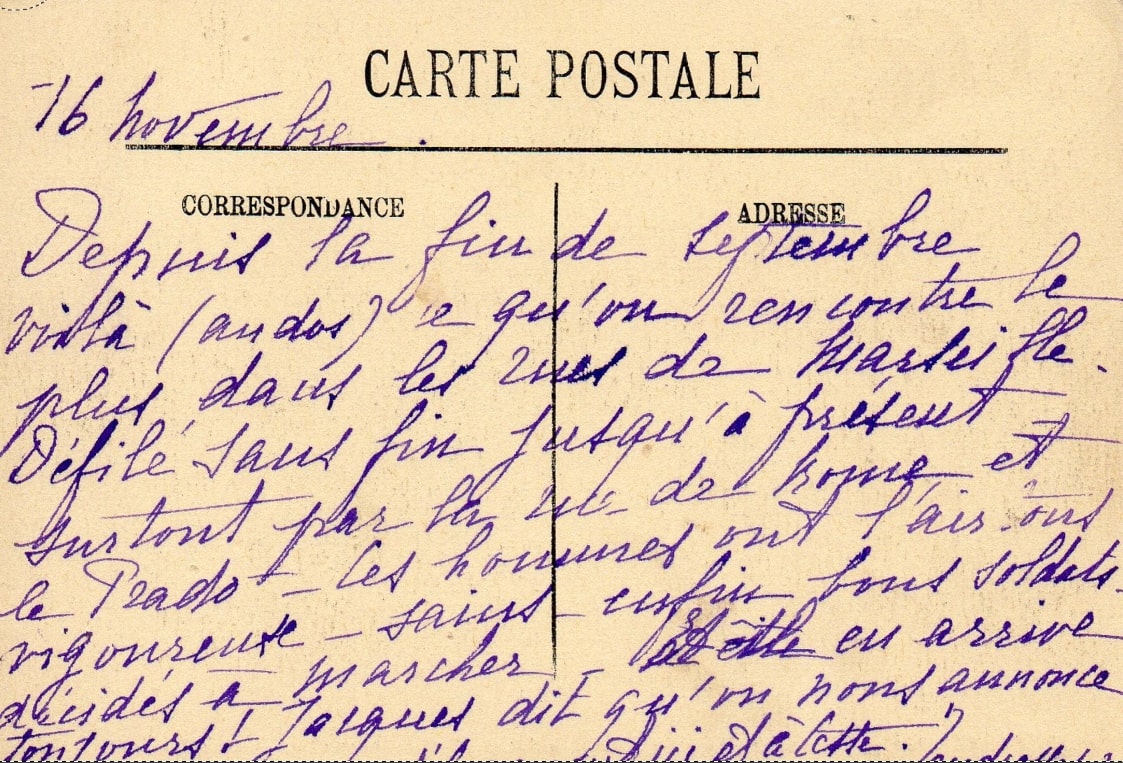 CARTE POSTALE
16 novembre.
CORRESPONDANCE
ADRESSE
Depuis la fin de septembre
voilà (au dos) ce qu'on rencontre le
plus dans les rues de Marseille.
Défilé sans fin jusqu'à présent
surtout par la rue de Rome et
le Prado - Ces hommes ont l'air tous
vigoureux - sains - enfin bons soldats
décidés à marcher - en arrive
toujours ! Jacques dit qu'on nous annonce
ici et à Cette.